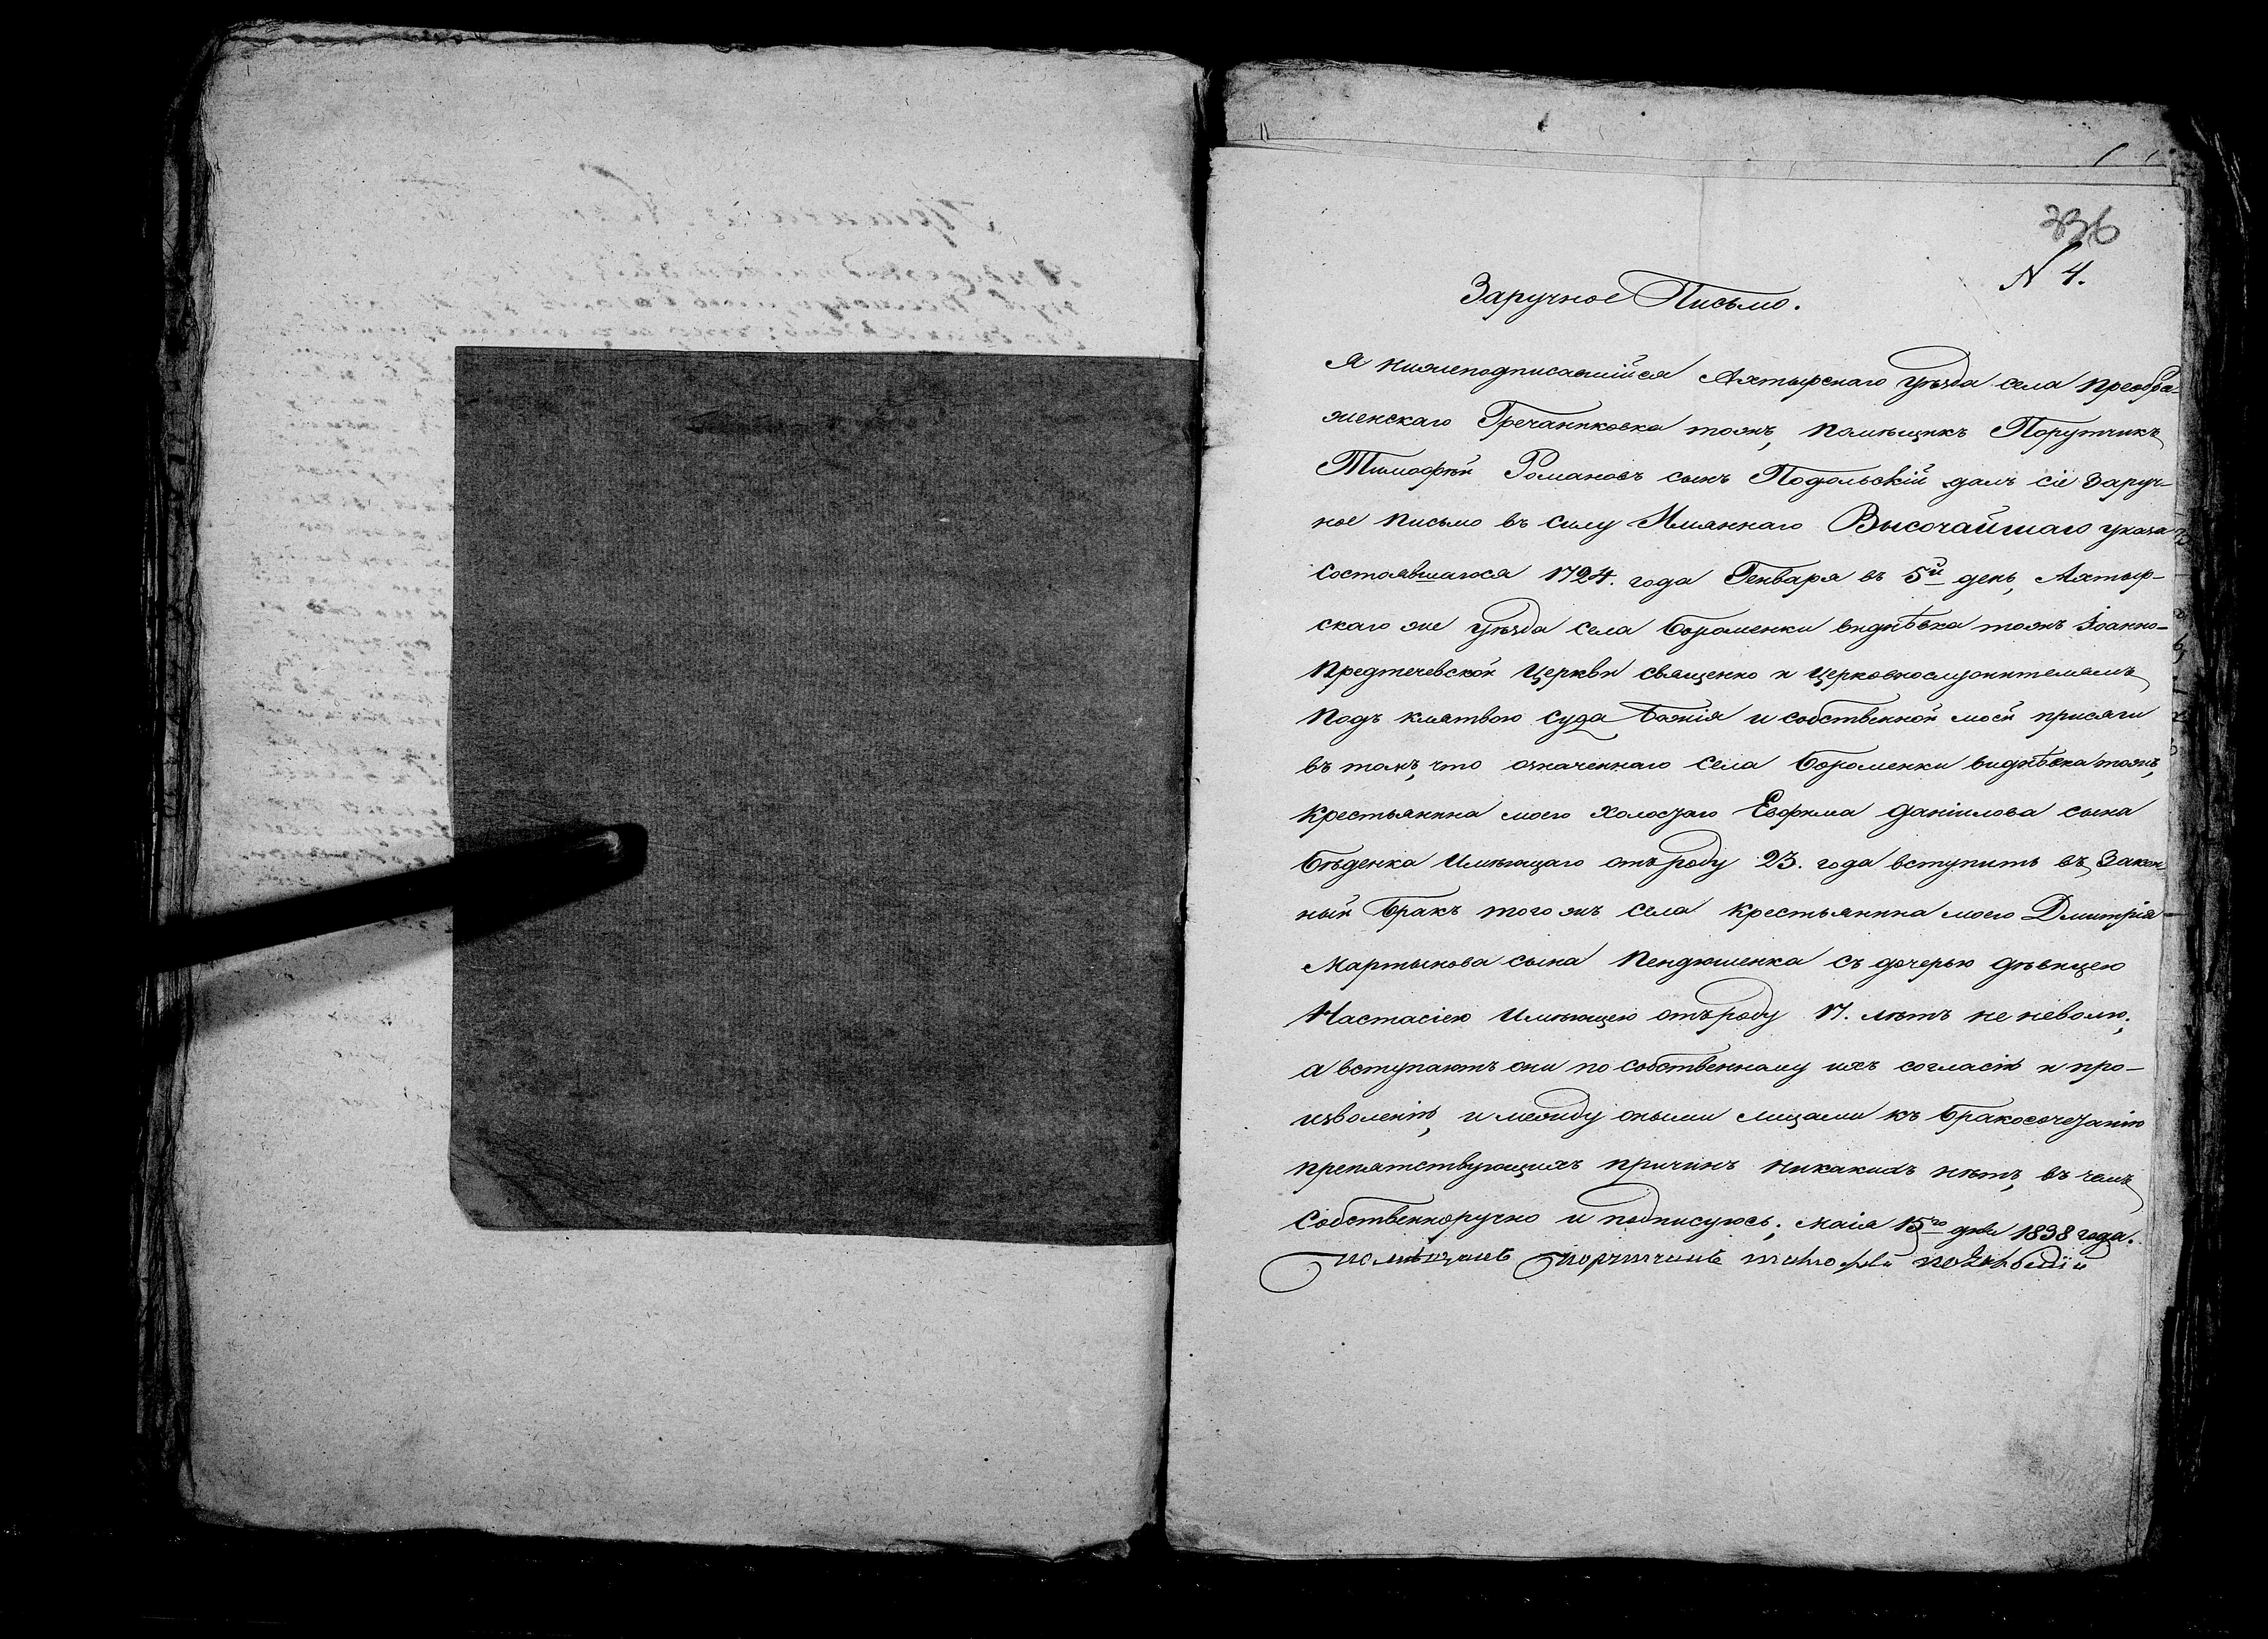 736
N 4.
Заручное Письмо.
Я нижеподписавшійся Ахтырскаго уѣзда села Преобра-
женскаго Гречаниковка тожъ, помѣщикъ Порутчикъ
Тимофѣй Романовъ сынъ Подольскій далъ сіе Заруч-
ное письмо въ силу Имяннаго Высочайшаго указа
состоявшагося 1724. года Генваря въ 5й день, Ахтыр-
скаго же уѣзда села Бороменки тожъ Іоанно-
Предтечевской Церкви священно и церковнослужителямъ
Подъ клятвою суда Божія и собственной моей присяги
въ томъ, что означеннаго села Бороменки тожъ,
крестьянина моего холостаго Евфима Даніилова сына
Бѣденка имѣющаго отъ роду 23. года вступить въ Закон-
ный бракъ того жъ села крестьянина моего Дмитрія
Мартынова сына Пендюшенка съ дочерью дѣвицею
Настасіею имѣющею отъ роду 17. лѣтъ не неволю;
а вступаютъ они по собственному ихъ согласію и про-
изволенію, и между оными лицами къ бракосочетанію
препятствующихъ причинъ никакихъ нѣтъ, въ чемъ
Собственноручно и подписуюсь; маія 15го дня 1838 года.
помѣщикъ порутчикъ тимофей